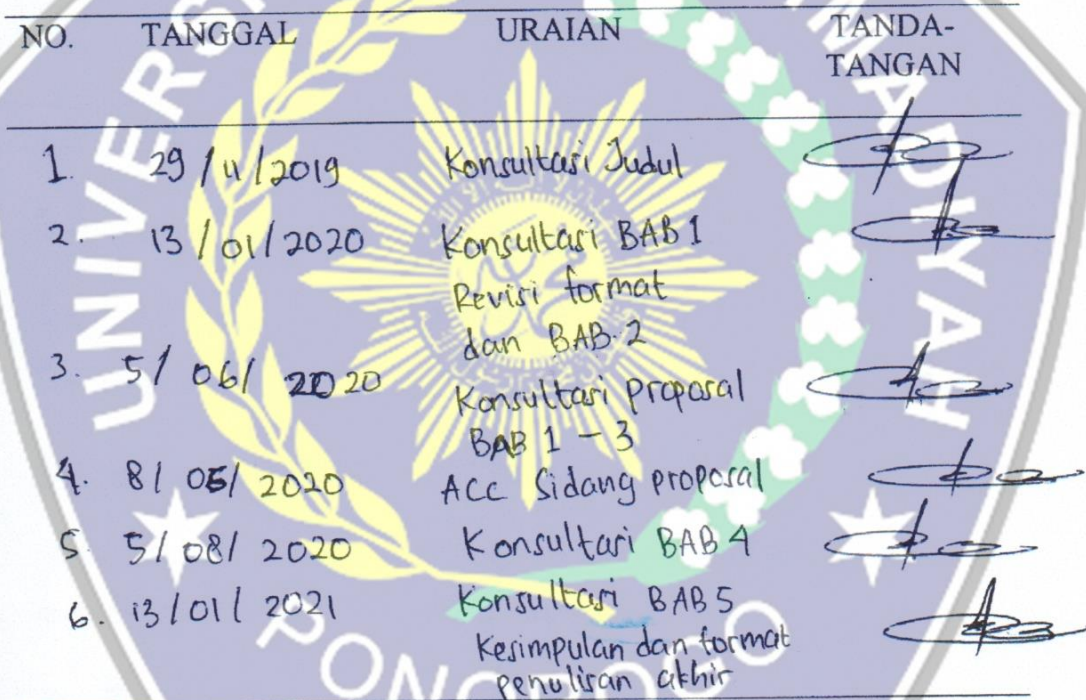 NO. TANGGAL URAIAN TANDA-
TANGAN
1. 29/11/2019 Konsultasi Judul
2. 13/01/2020 Konsultasi BAB 1
Revisi format
dan BAB. 2
3. 5/06/2020 Konsultasi proposal
BAB 1 - 3
4. 8/06/2020 ACC Sidang proposal
5. 5/08/2020 Konsultasi BAB 4
6. 13/01/2021 Konsultasi BAB 5
Kesimpulan dan format
penulisan akhir